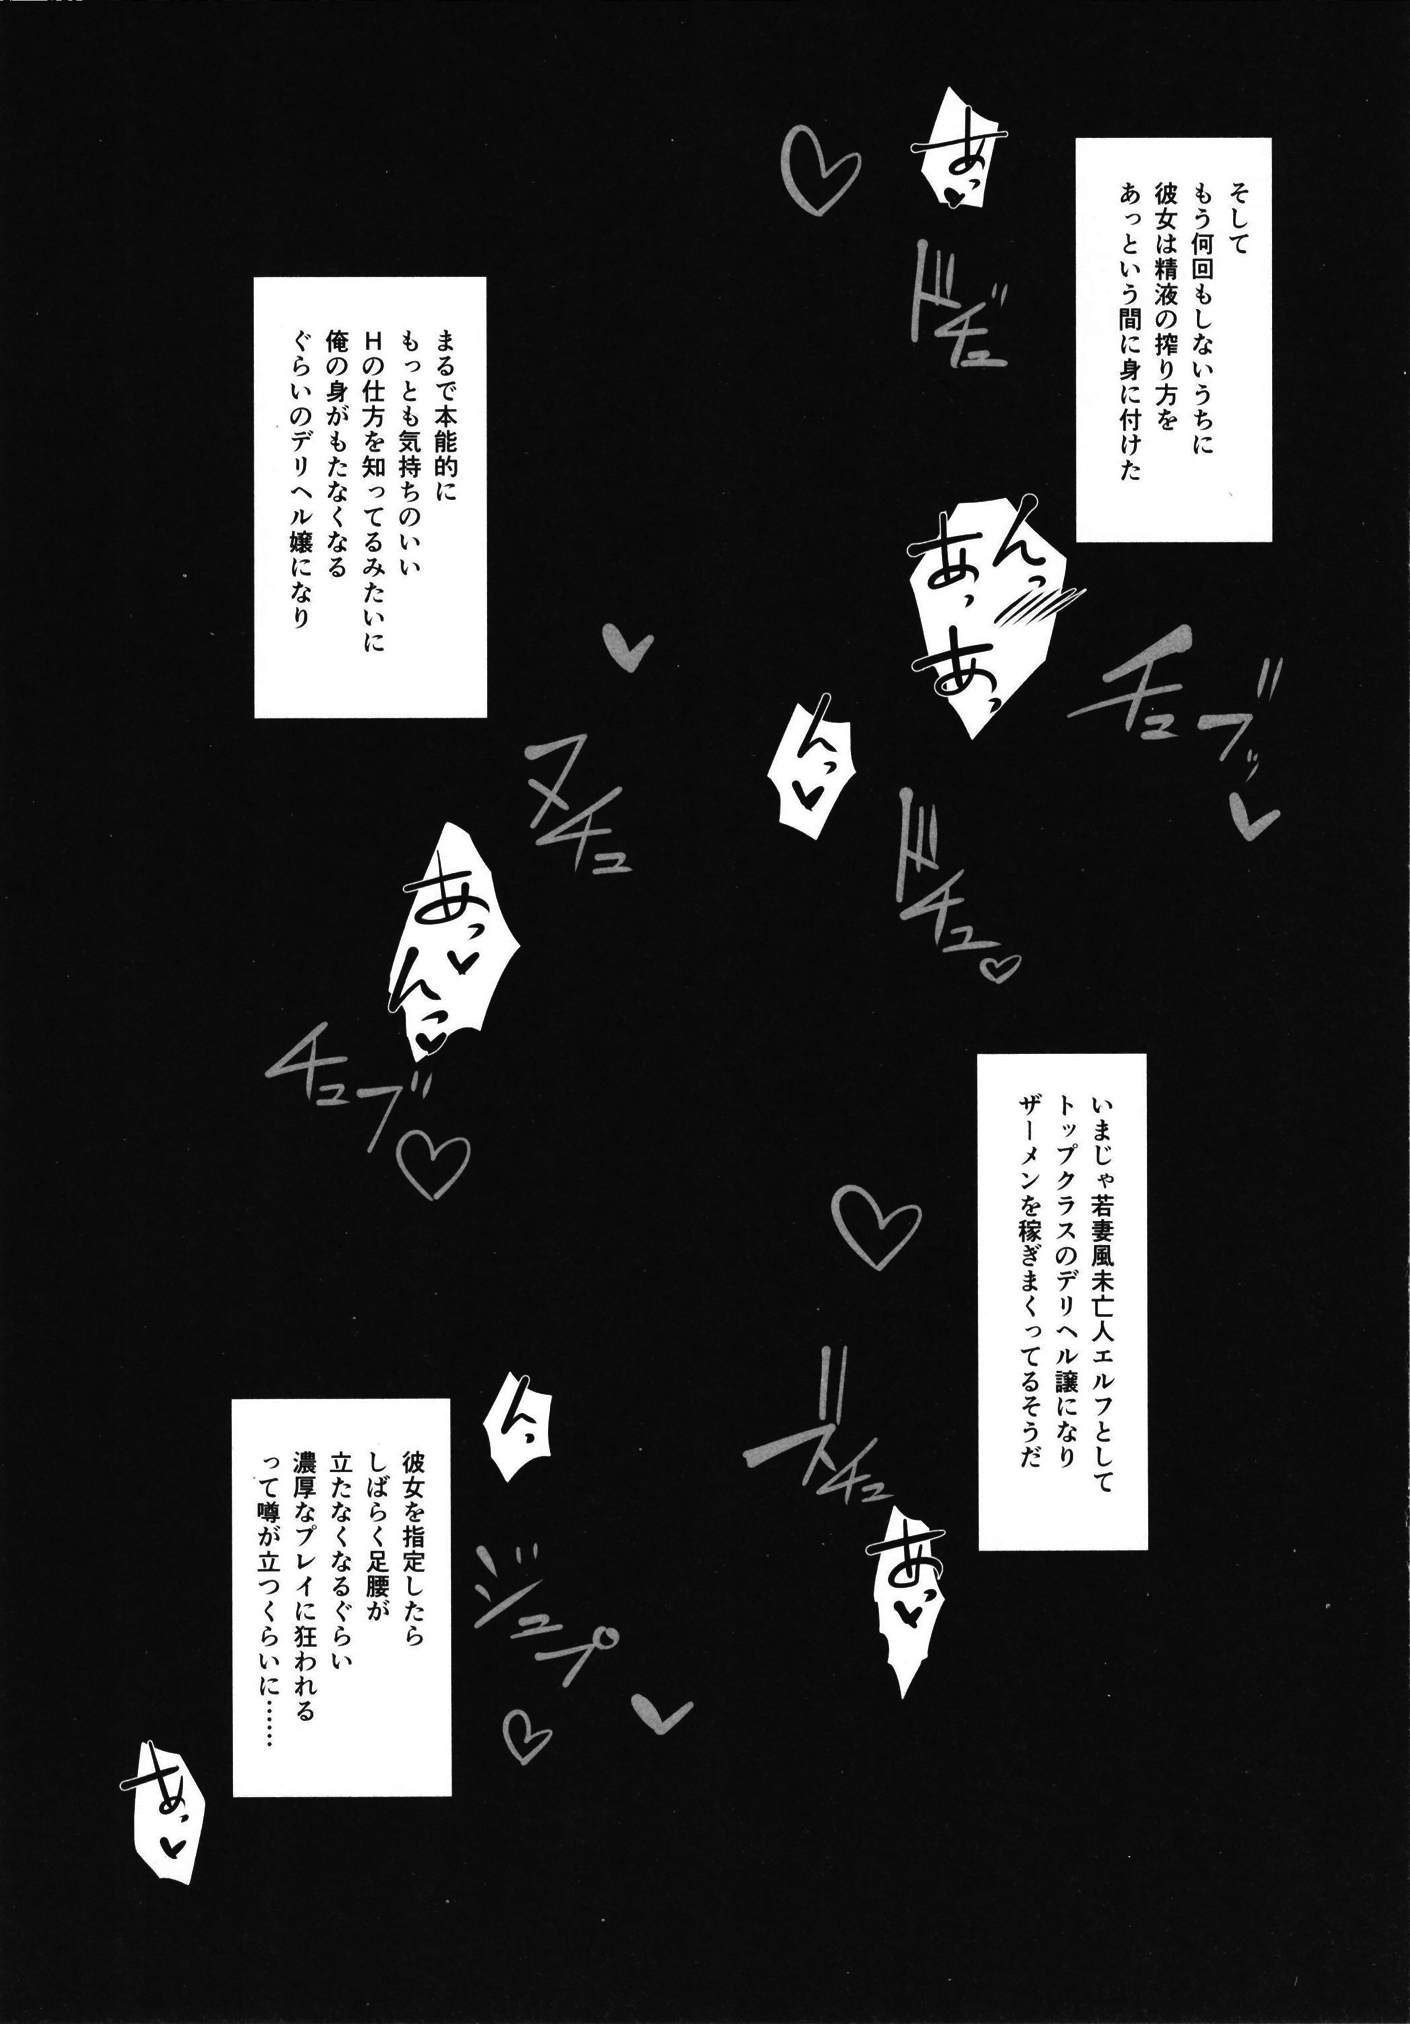 そして
もう何回もしないうちに
彼女は精液の搾り方を
あっという間に身に付けた
あっ♥
ドチュ
んっ
あっ
あっ
チュブッ♥
んっ♥
ドチュ♡
まるで本能的に
もっとも気持ちのいい
Hの仕方を知ってるみたいに
俺の身がもたなくなる
ぐらいのデリヘル嬢になり
ヌチュ
あっ♥
んっ♥
チュブ♡
いまじゃ若妻風未亡人エルフとして
トップクラスのデリヘル譲になり
ザーメンを稼ぎまくってるそうだ
ズチュ
あっ♥
彼女を指定したら
しばらく足腰が
立たなくなるぐらい
濃厚なプレイに狂われる
って噂が立つくらいに……
んっ
ジュプ♡
あっ♥